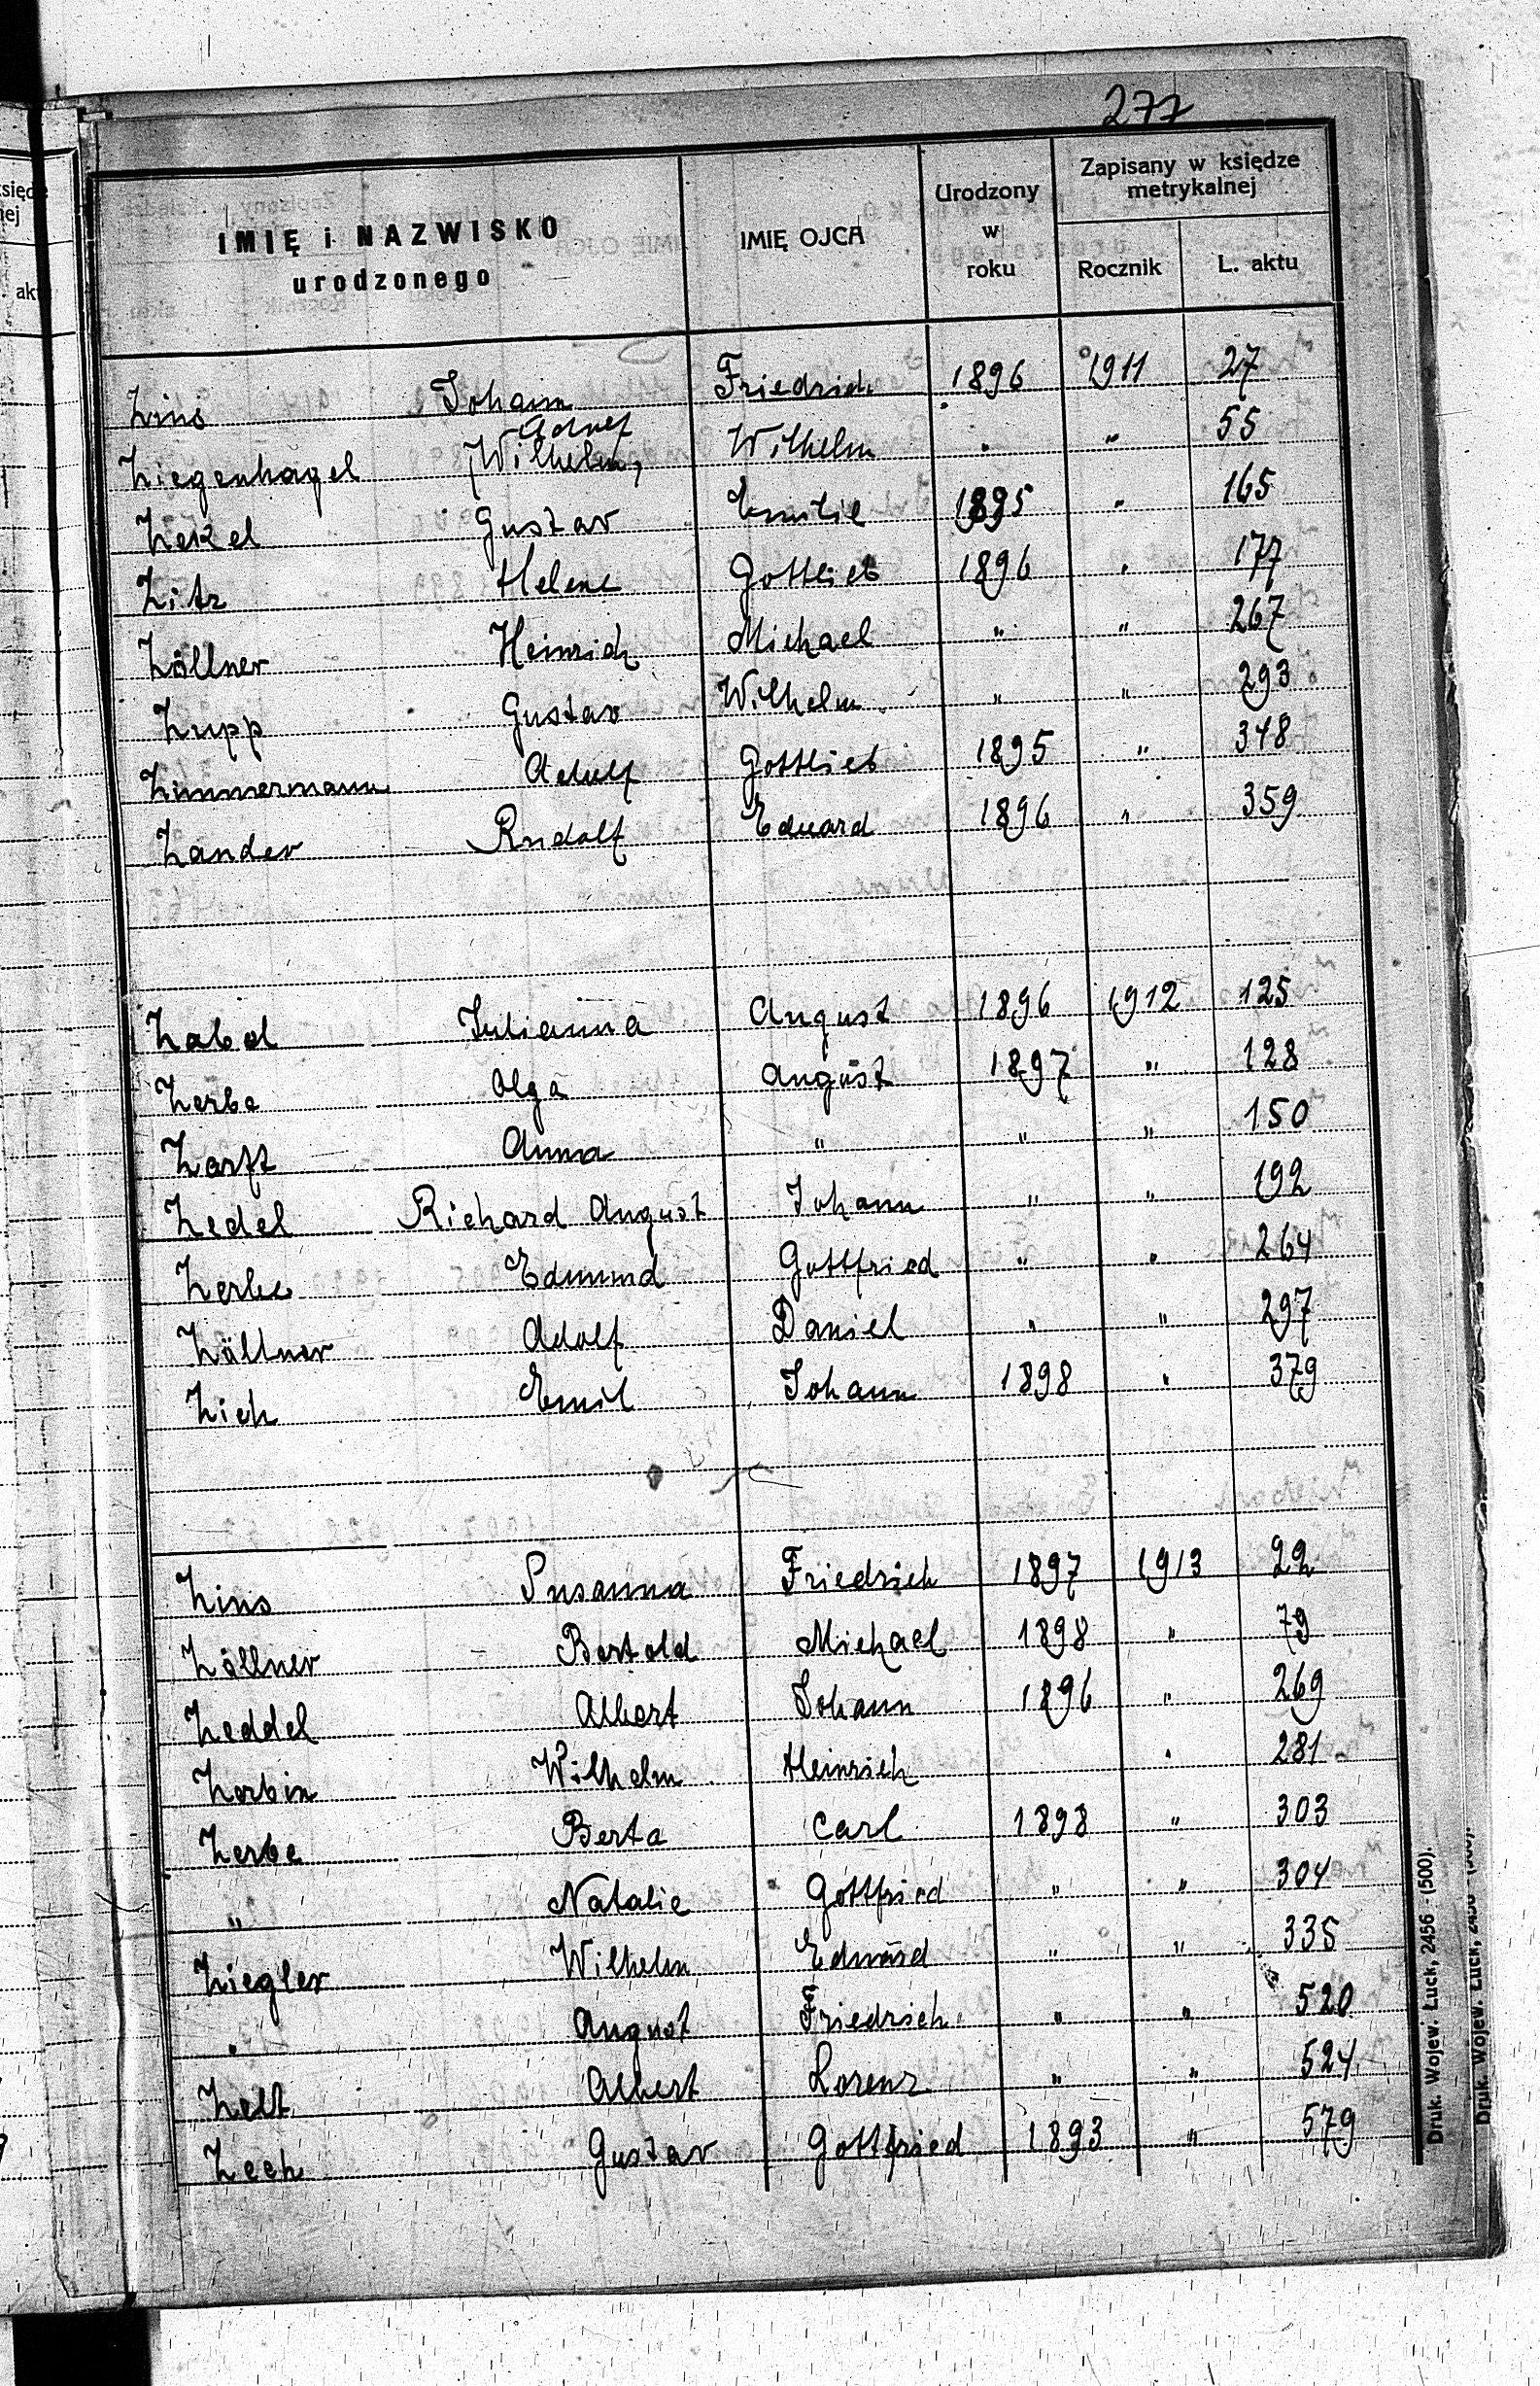 277
IMIĘ i NAZWISKO urodzonego
IMIĘ OJCA
Urodzony w roku
Zapisany w księdze metrykalnej
Rocznik
L. aktu
Zins Johann Friedrich 1896 1911 27
Adolf
Ziegenhagel Wilhelm, Wilhelm " " 55
Gustav Emilie 1895 " 165
Zitz Helene Gottlieb 1896 " 177
Zöllner Heinrich Michael " " 267
Zupp Gustav Wilhelm " " 293
Zimmermann Adolf Gottlieb 1895 " 348
Zander Rudolf Eduard 1896 " 359
Zabel Julianna August 1896 1912 125
Zerbe Olga August 1897 " 128
Zarft Anna " " " 150
Zedel Richard August Johann " " 192
Zerbe Edmund Gottfried " " 264
Zöllner Adolf Daniel " " 297
Zich Emil Johann 1898 " 379
Zins Susanna Friedrich 1897 1913 22
Zöllner Bertold Michael 1898 " 79
Zeddel Albert Johann 1896 " 269
Zerbin Wilhelm Heinrich " 281
Zerbe Berta Carl 1898 " 303
" Natalie Gottfried " " 304
Ziegler Wilhelm Eduard " " 335
" August Friedrich " " 520
Zelt Albert Lorenz " " 524
Zech Gustav Gottfried 1893 " 579
Druk. Wojew. Łuck, 2456 - (500).
Druk. Wojew. Łuck, 2456 - (500).